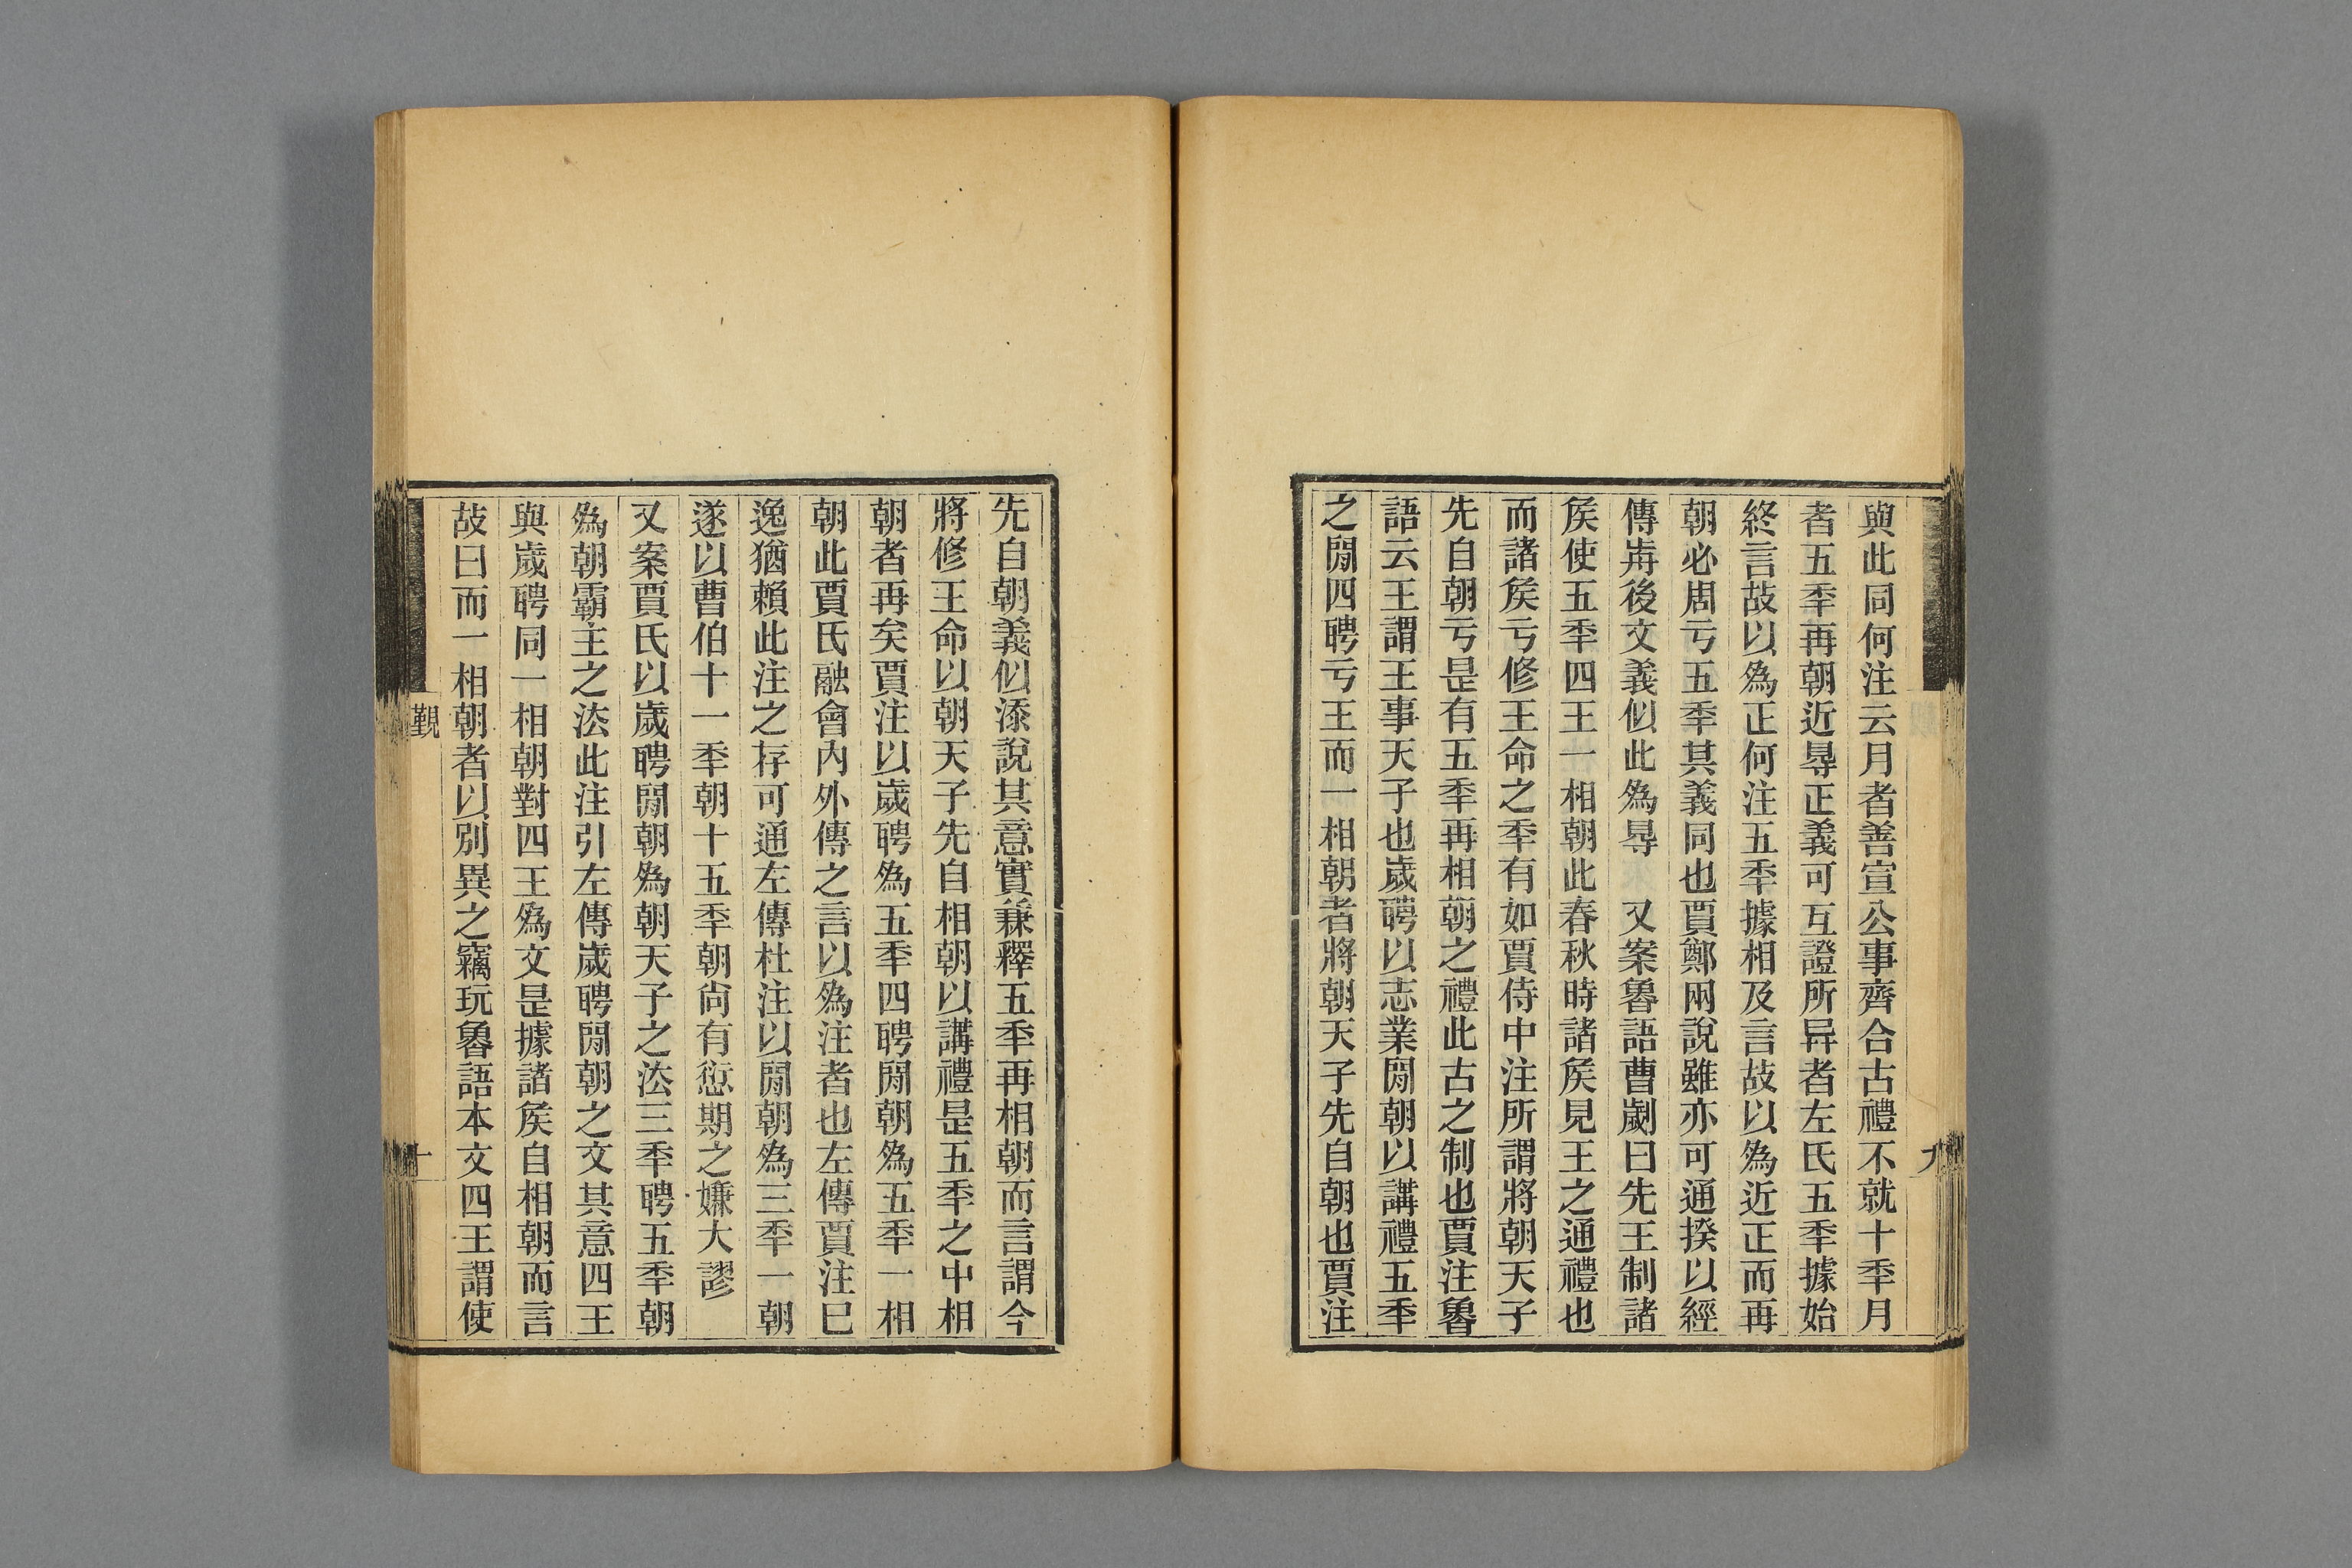 與此同何注云月者善宣公事齊合古禮不就十秊月
者五秊再朝近㝵正義可互證所异者左氏五秊據始
終言故以爲正何注五秊據相及言故以爲近正而再
朝必周亏五秊其義同也賈鄭兩說雖亦可通揆以經
傳歬後文義似此爲㝵　又案魯語曹劌曰先王制諸
矦使五秊四王一相朝此春秋時諸矦見王之通禮也
而諸矦亏修王命之秊有如賈侍中注所謂將朝天子
先自朝亏是有五秊再相朝之禮此古之制也賈注魯
語云王謂王事天子也歲聘以志業閒朝以講禮五秊
之閒四聘亏王而一相朝者將朝天子先自朝也賈注
九
先自朝義似添說其意實兼釋五秊再相朝而言謂今
將修王命以朝天子先自相朝以講禮是五秊之中相
朝者再矣賈注以歲聘爲五秊四聘閒朝爲五秊一相
朝此賈氏融會內外傳之言以爲注者也左傳賈注已
逸猶賴此注之存可通左傳杜注以閒朝爲三秊一朝
遂以曹伯十一秊朝十五秊朝尙有愆期之嫌大謬
又案賈氏以歲聘閒朝爲朝天子之法三秊聘五秊朝
爲朝霸主之法此注引左傳歲聘閒朝之文其意四王
與歲聘同一相朝對四王爲文是據諸矦自相朝而言
故曰而一相朝者以別異之竊玩魯語本文四王謂使
覲
十